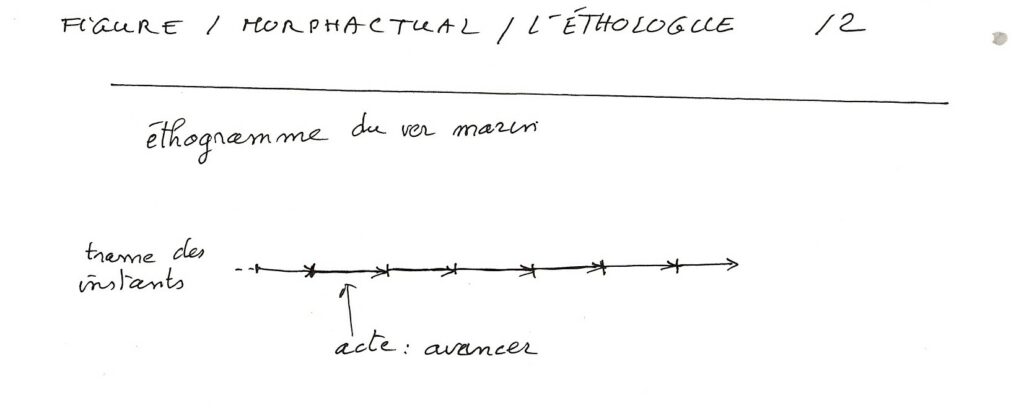 FIGURE / MORPHACTUAL / L'ÉTHOLOGUE /2
éthogramme du ver marin
trame des
instants
acte : avancer